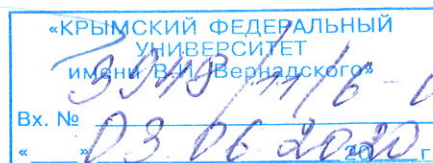 «КРЫМСКИЙ ФЕДЕРАЛЬНЫЙ
УНИВЕРСИТЕТ
имени В.И. Вернадского»
3948/11/6-
Вх. №
« » 03 06 2020 г